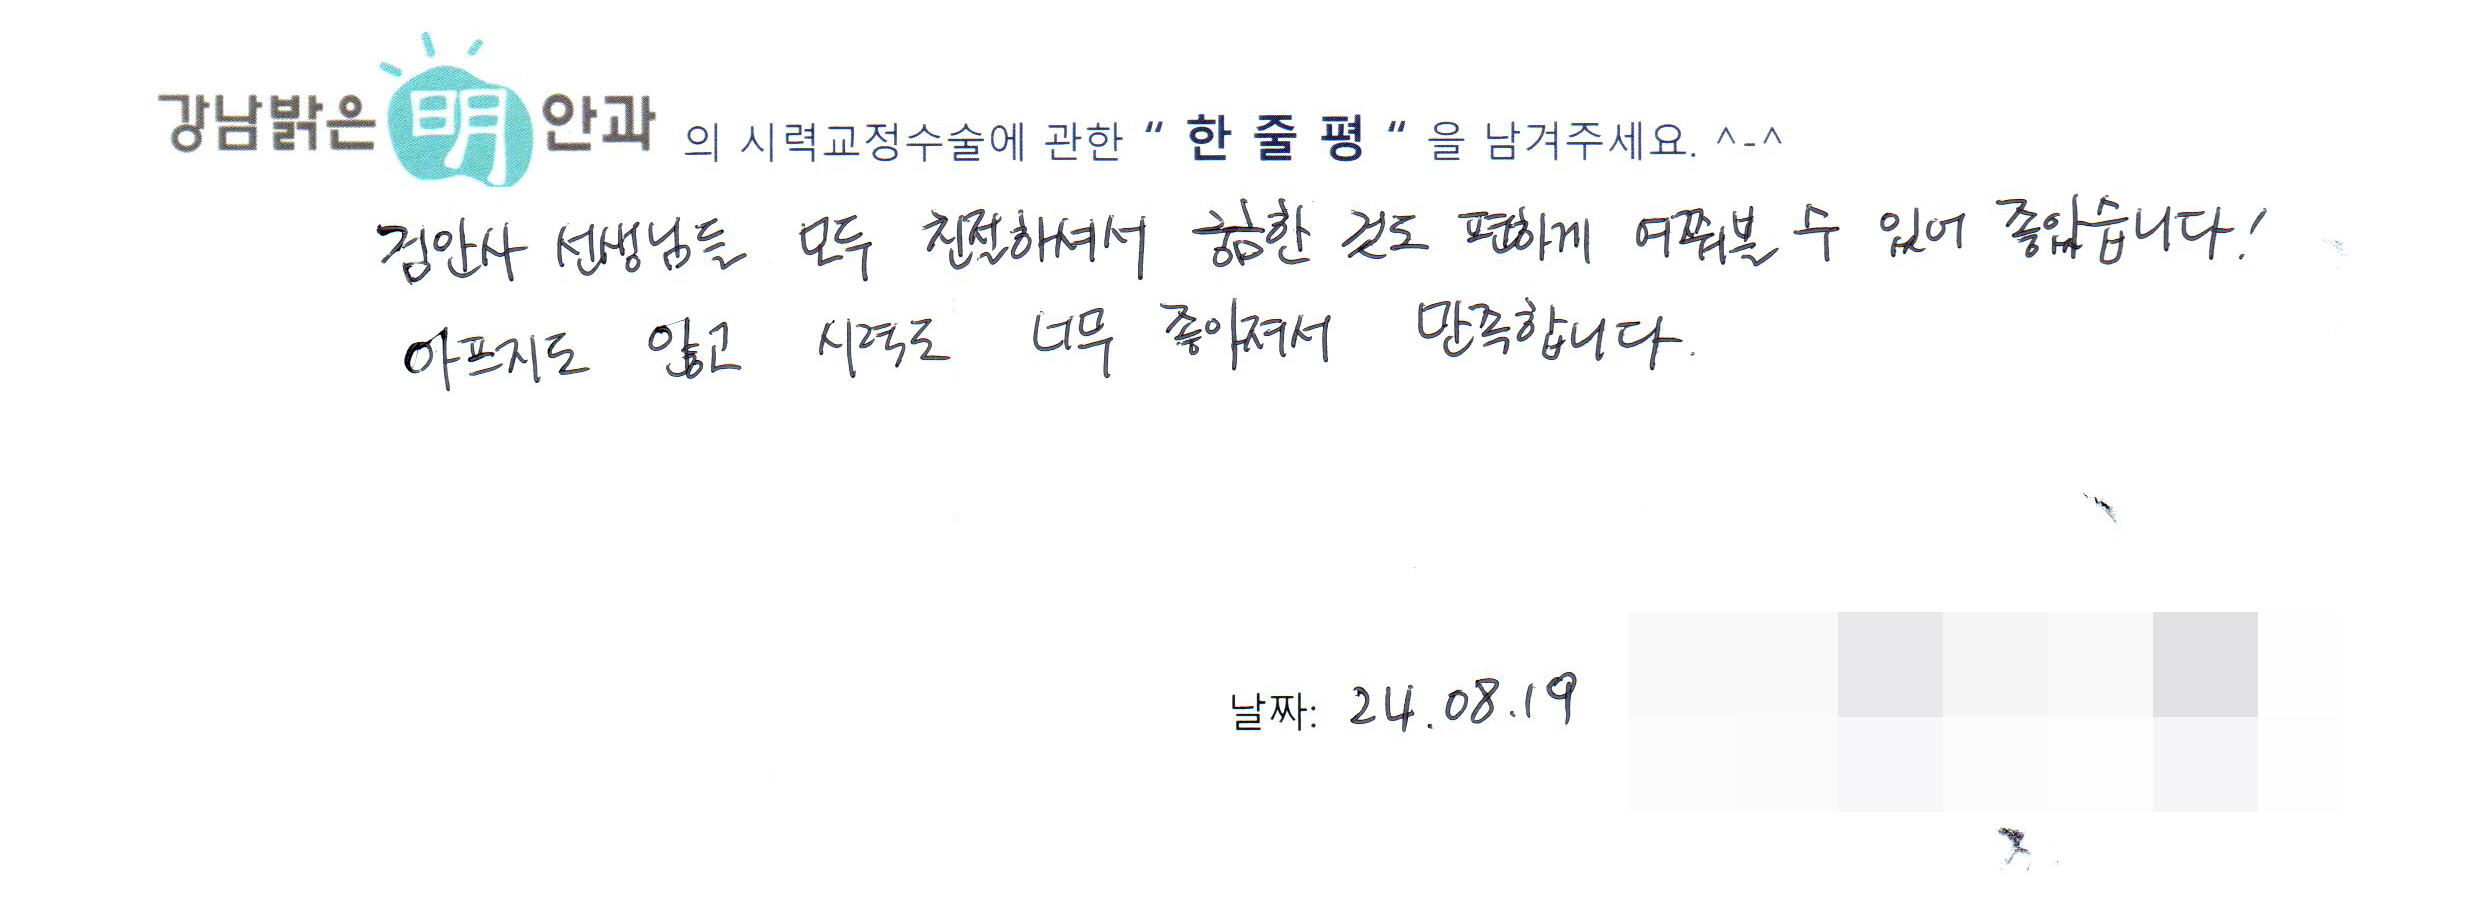 강남밝은明안과 의 시력교정수술에 관한 “ 한 줄 평 “ 을 남겨주세요. ^-^
검안사 선생님들 모두 친절하셔서 궁금한 것도 편하게 여쭤볼 수 있어 좋았습니다!
아프지도 않고 시력도 너무 좋아져서 만족합니다.
날짜: 24.08.19